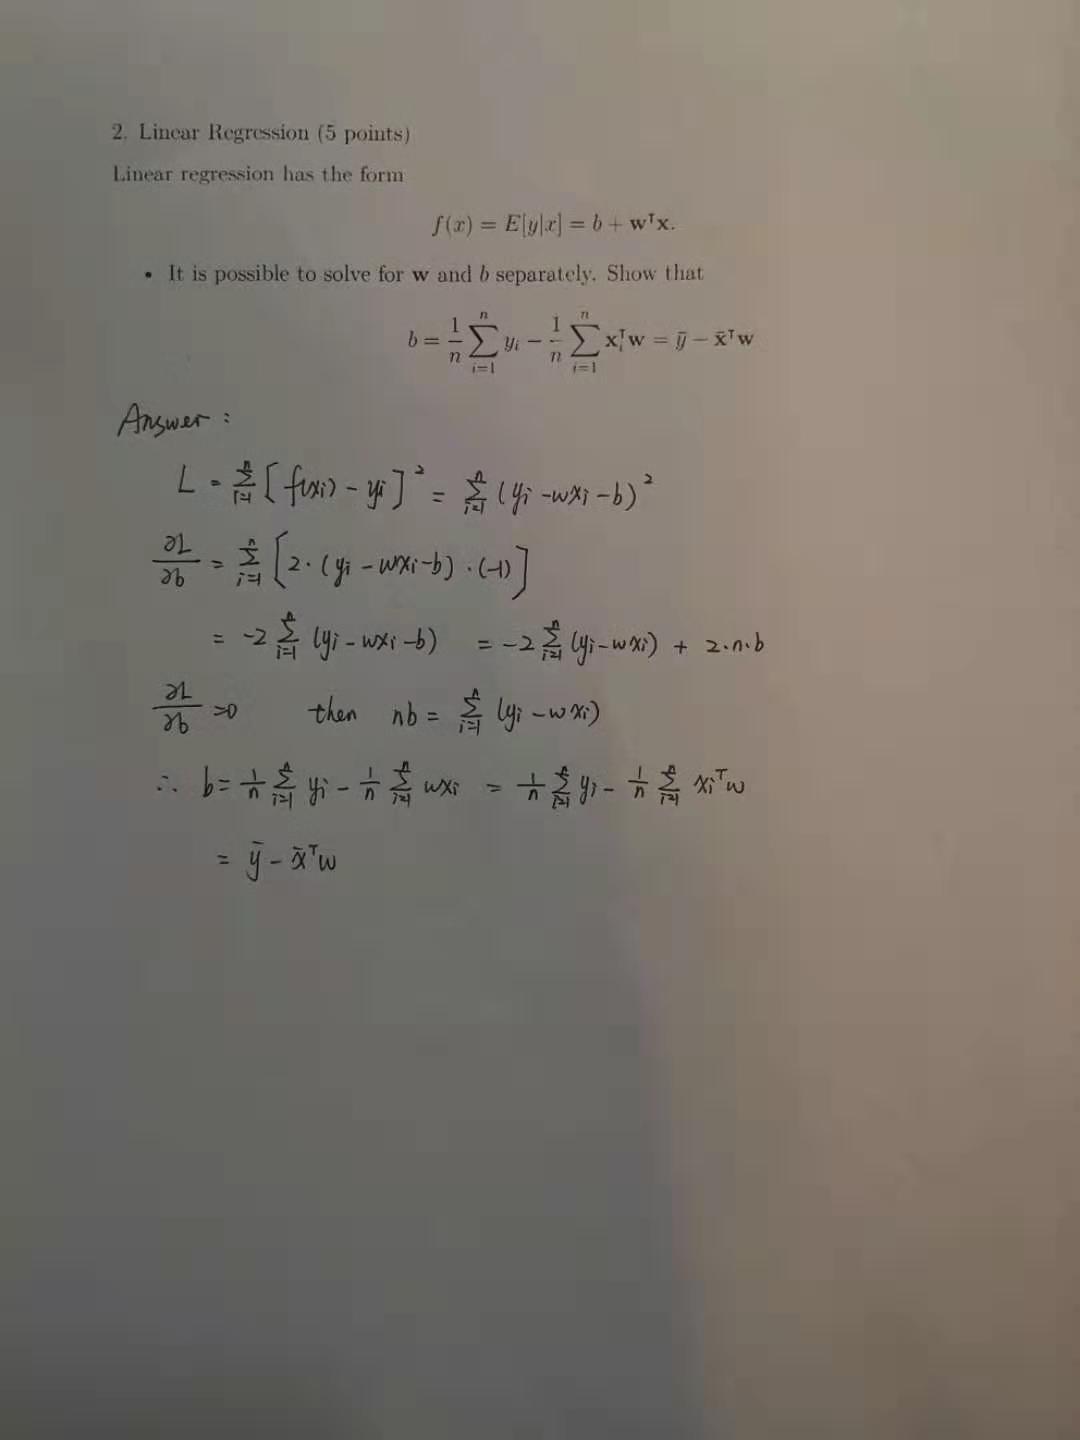 2. Linear Regression (5 points)
Linear regression has the form
f(x) = E[y|x] = b + wᵀx.
• It is possible to solve for w and b separately. Show that
b = 1/n ∑ⁿᵢ₌₁ yᵢ − 1/n ∑ⁿᵢ₌₁ xᵢᵀw = ȳ − x̄ᵀw
Answer :
L = ∑ⁿᵢ₌₁ [f(xᵢ) − yᵢ]² = ∑ⁿᵢ₌₁ (yᵢ − wxᵢ − b)²
∂L/∂b = ∑ⁿᵢ₌₁ [2 · (yᵢ − wxᵢ − b) · (−1)]
= −2 ∑ⁿᵢ₌₁ (yᵢ − wxᵢ − b) = −2 ∑ⁿᵢ₌₁ (yᵢ − wxᵢ) + 2·n·b
∂L/∂b = 0 then nb = ∑ⁿᵢ₌₁ (yᵢ − wxᵢ)
∴ b = 1/n ∑ⁿᵢ₌₁ yᵢ − 1/n ∑ⁿᵢ₌₁ wxᵢ = 1/n ∑ⁿᵢ₌₁ yᵢ − 1/n ∑ⁿᵢ₌₁ xᵢᵀw
= ȳ − x̄ᵀw